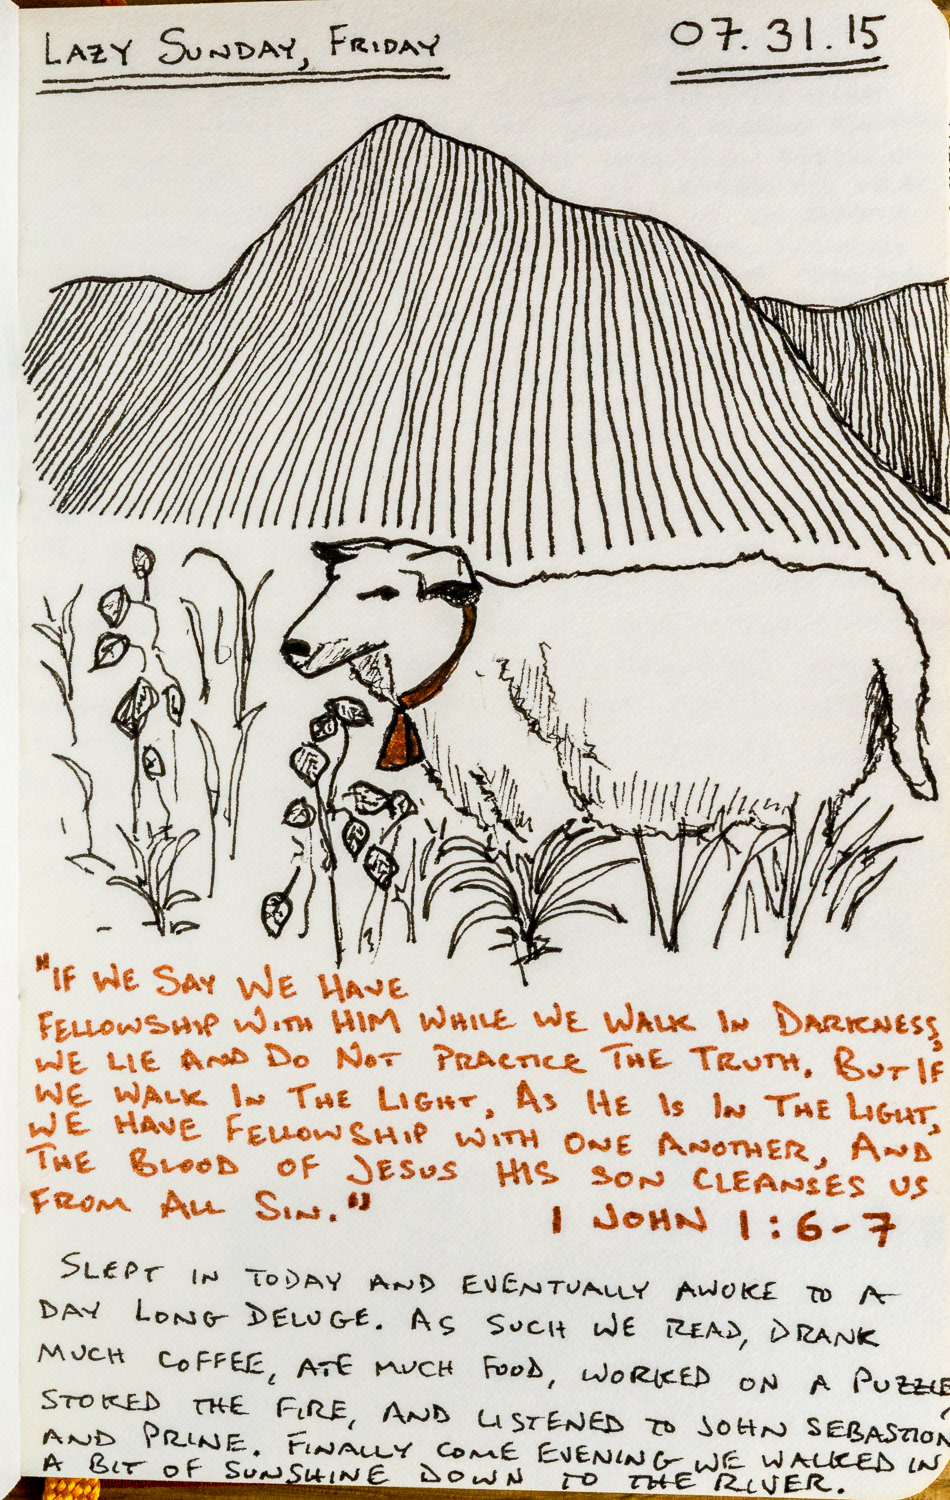 LAZY SUNDAY, FRIDAY 07.31.15
"IF WE SAY WE HAVE
FELLOWSHIP WITH HIM WHILE WE WALK IN DARKNESS,
WE LIE AND DO NOT PRACTICE THE TRUTH. BUT IF
WE WALK IN THE LIGHT, AS HE IS IN THE LIGHT,
WE HAVE FELLOWSHIP WITH ONE ANOTHER, AND
THE BLOOD OF JESUS HIS SON CLEANSES US
FROM ALL SIN."
1 JOHN 1:6-7
SLEPT IN TODAY AND EVENTUALLY AWOKE TO A
DAY LONG DELUGE. AS SUCH WE READ, DRANK
MUCH COFFEE, ATE MUCH FOOD, WORKED ON A PUZZLE,
STOKED THE FIRE, AND LISTENED TO JOHN SEBASTION
AND PRINE. FINALLY COME EVENING WE WALKED IN
A BIT OF SUNSHINE DOWN TO THE RIVER.